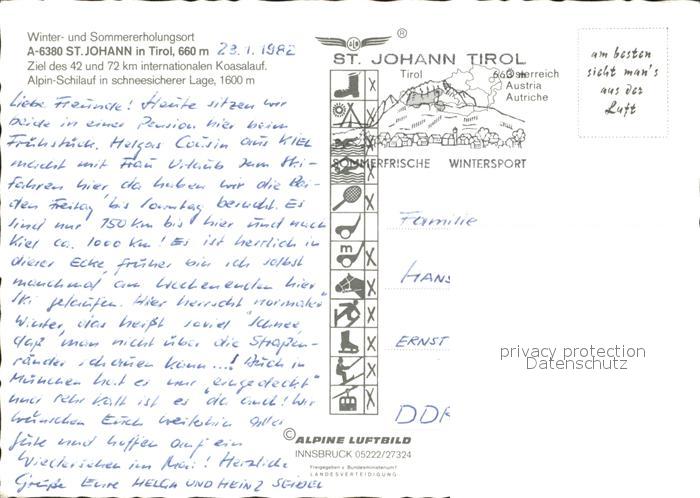 Winter- und Sommererholungsort
A-6380 ST. JOHANN in Tirol, 660 m 23.1.1982
Ziel des 42 und 72 km internationalen Koasalauf.
Alpin-Schilauf in schneesicherer Lage, 1600 m
Liebe Freunde! Heute sitzen wir
beide in einer Pension hier beim
Frühstück. Helgas Cousin aus KIEL
macht mit Frau Urlaub zum Ski-
fahren hier da haben wir die Bei-
den Freitag bis Sonntag besucht. Es
sind nur 150 Km bis hier und nach
Kiel ca. 1000 Km! Es ist herrlich in
dieser Ecke, früher bin ich selbst
manchmal am Wochenenden hier
Ski gelaufen. Hier herrscht normaler
Winter, das heißt soviel Schnee,
daß man nicht über die Straßen-
ränder schauen kann...! Auch in
München hat es uns "eingedeckt"
und sehr kalt ist es da auch! Wir
wünschen Euch weiterhin alles
Gute und hoffen auf ein
Wiedersehen im Mai! Herzliche
Grüße Eure HELGA UND HEINZ SEIDEL
®
ST. JOHANN TIROL
Tirol 660 m Österreich
Austria
Autriche
SOMMERFRISCHE WINTERSPORT
am besten
sieht man's
aus der
Luft
Familie
HANS
ERNST
DDR
privacy protection
Datenschutz
© ALPINE LUFTBILD
INNSBRUCK 05222/27324
Freigegeben v. Bundesministerium f.
LANDESVERTEIDIGUNG